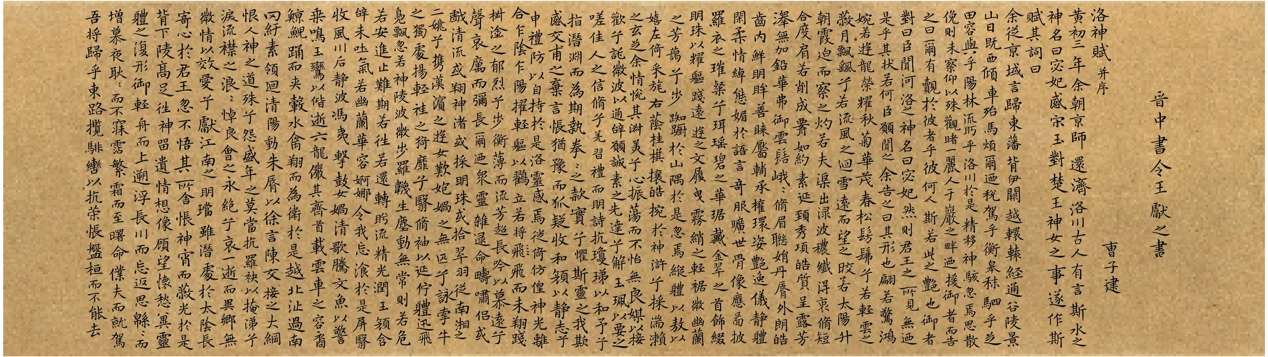 晉中書令王獻之書
曹子建
洛神賦 并序
黃初三年余朝京師還濟洛川古人有言斯水之
神名曰宓妃感宋玉對楚王神女之事遂作斯
賦其詞曰
余從京域言歸東藩背伊闕越轘轅經通谷陵景
山日既西傾車殆馬煩爾迺稅駕乎蘅皋秣駟乎芝
田容與乎陽林流眄乎洛川於是精移神駭忽焉思散
俛則未察仰以殊觀睹麗人于巖之畔迺援御者而告
之曰爾有覿於彼者乎彼何人斯若此之艷也御者
對曰臣聞河洛之神名曰宓妃然則君王之所見無迺
是乎其狀若何臣願聞之余告之曰其形也翩若驚鴻
婉若遊龍榮耀秋菊華茂春松髣髴乎若輕雲之
蔽月飄飄乎若流風之迴雪遠而望之皎若太陽升
朝霞迫而察之灼若夫渠出淥波穠纖得衷脩短
合度肩若削成要如約素延頸秀項皓質呈露芳
澤無加鉛華弗御雲髻峨峨脩眉聯娟丹脣外朗皓
齒內鮮明眸善睞靨輔承權瓌姿艷逸儀靜體
閑柔情綽態媚於語言奇服曠世骨像應圖披
羅衣之璀粲兮珥瑤碧之華琚戴金翠之首飾綴
明珠以耀軀踐遠遊之文履曳霧綃之輕裾微幽蘭
之芳藹兮步踟躕於山隅於是忽焉縱體以敖以
嬉左倚采旄右蔭桂旗攘皓腕於神滸兮采湍瀨
之玄芝余情悅其淑美兮心振蕩而不怡無良媒以接
歡兮託微波以通辭願誠素之先達兮解玉珮以要之
嗟佳人之信脩兮羌習禮而明詩抗瓊珶以和予兮
指潛淵而為期執拳拳之款實兮懼斯靈之我欺
感交甫之棄言悵猶豫而狐疑收和顏以靜志兮
申禮防以自持於是洛靈感焉徙倚仿偟神光離
合乍陰乍陽擢輕軀以鶴立若將飛而未翔踐
椒塗之郁烈兮步衡薄而流芳超長吟以慕遠兮
聲哀厲而彌長爾迺眾靈雜遝命疇嘯侶或
戲清流或翔神渚或採明珠或拾翠羽從南湘之
二姚兮攜漢濱之遊女歎匏媧之無匹兮詠牽牛
之獨處揚輕袿之猗靡兮翳脩袖以延佇體迅飛
鳧飄忽若神陵波微步羅韈生塵動無常則若危
若安進止難期若往若還轉眄流精光潤玉顏含
辭未吐氣若幽蘭華容婀娜令我忘飡於是屏翳
收風川后靜波馮夷擊鼓女媧清歌騰文魚以警
乘鳴玉鸞以偕逝六龍儼其齊首載雲車之容裔
鯨鯢踊而夾轂水禽翔而為衛於是越北沚過南
岡紆素領迴清陽動朱脣以徐言陳交接之大綱
恨人神之道殊兮怨盛年之莫當抗羅袂以掩涕兮
淚流襟之浪浪悼良會之永絕兮哀一逝而異鄉無
微情以效愛兮獻江南之明璫雖潛處於太陰長
寄心於君王忽不悟其所舍悵神宵而蔽光於是
背下陵高足往神留遺情想像顧望懷愁冀靈
體之復形御輕舟而上遡浮長川而忘返思緜緜而
增慕夜耿耿而不寐霑繁霜而至曙命僕夫而就駕
吾將歸乎東路攬騑轡以抗策悵盤桓而不能去